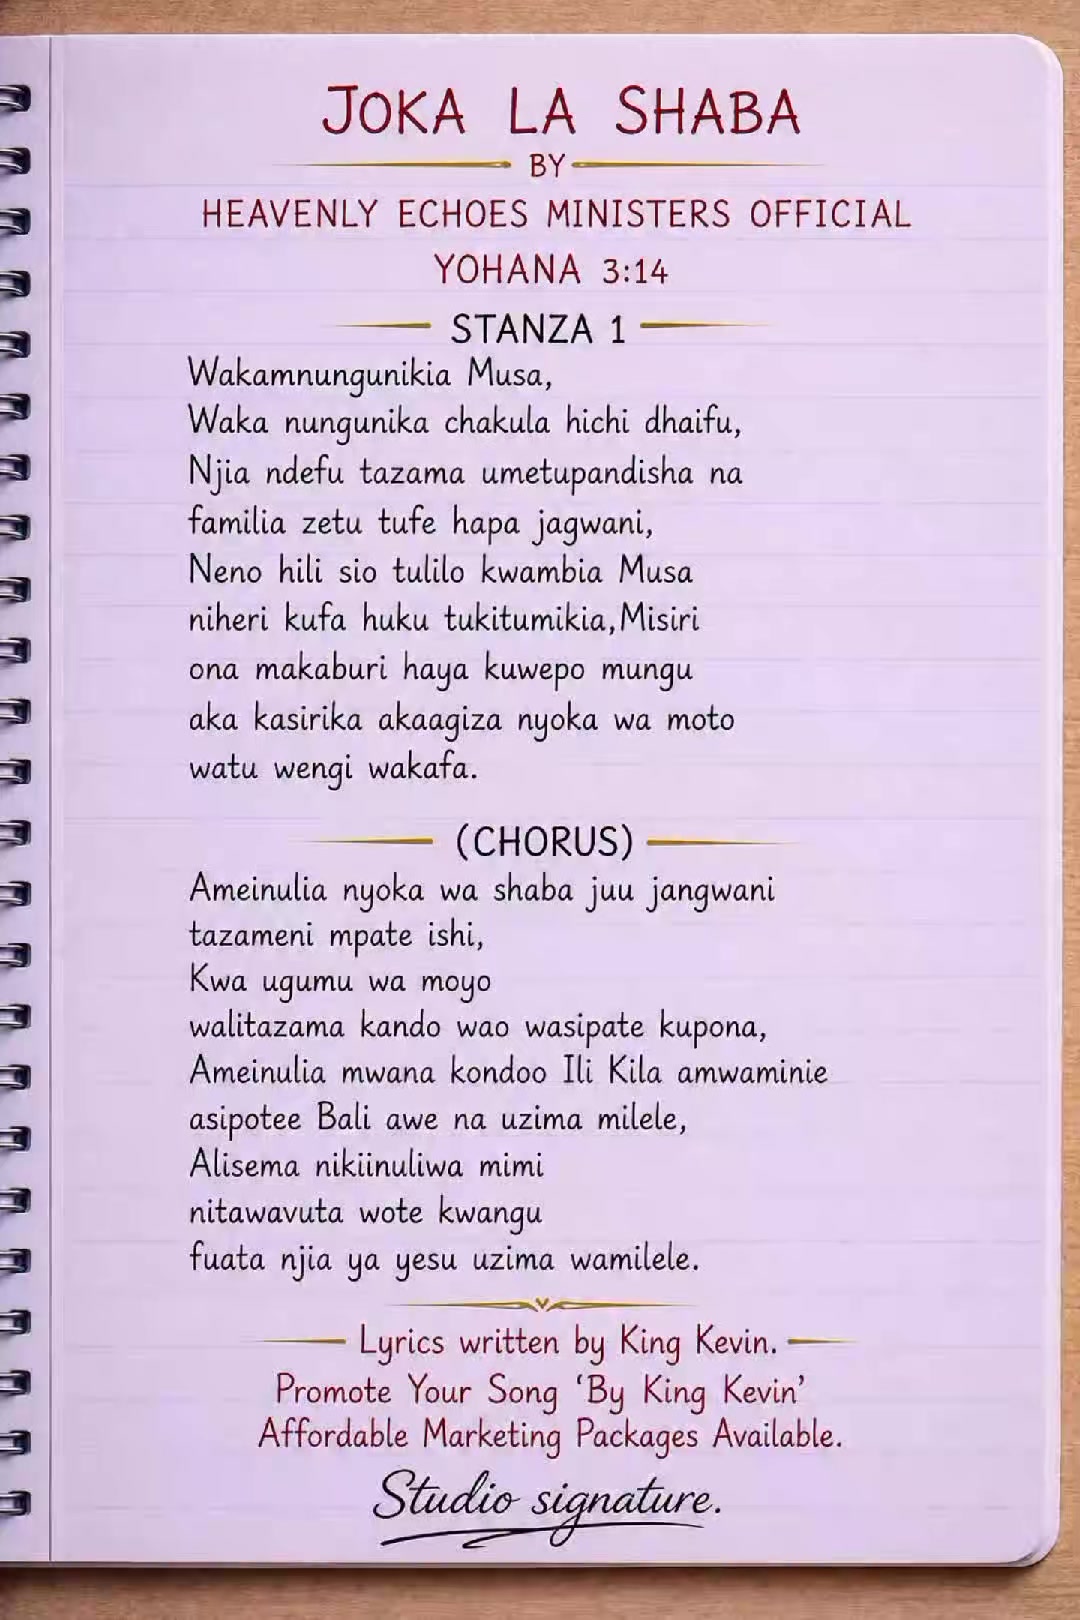 JOKA LA SHABA
BY
HEAVENLY ECHOES MINISTERS OFFICIAL
YOHANA 3:14
STANZA 1
Wakamnungunikia Musa,
Waka nungunika chakula hichi dhaifu,
Njia ndefu tazama umetupandisha na
familia zetu tufe hapa jagwani,
Neno hili sio tulilo kwambia Musa
niheri kufa huku tukitumikia,Misiri
ona makaburi haya kuwepo mungu
aka kasirika akaagiza nyoka wa moto
watu wengi wakafa.
(CHORUS)
Ameinulia nyoka wa shaba juu jangwani
tazameni mpate ishi,
Kwa ugumu wa moyo
walitazama kando wao wasipate kupona,
Ameinulia mwana kondoo Ili Kila amwaminie
asipotee Bali awe na uzima milele,
Alisema nikiinuliwa mimi
nitawavuta wote kwangu
fuata njia ya yesu uzima wamilele.
Lyrics written by King Kevin.
Promote Your Song ‘By King Kevin’
Affordable Marketing Packages Available.
Studio signature.